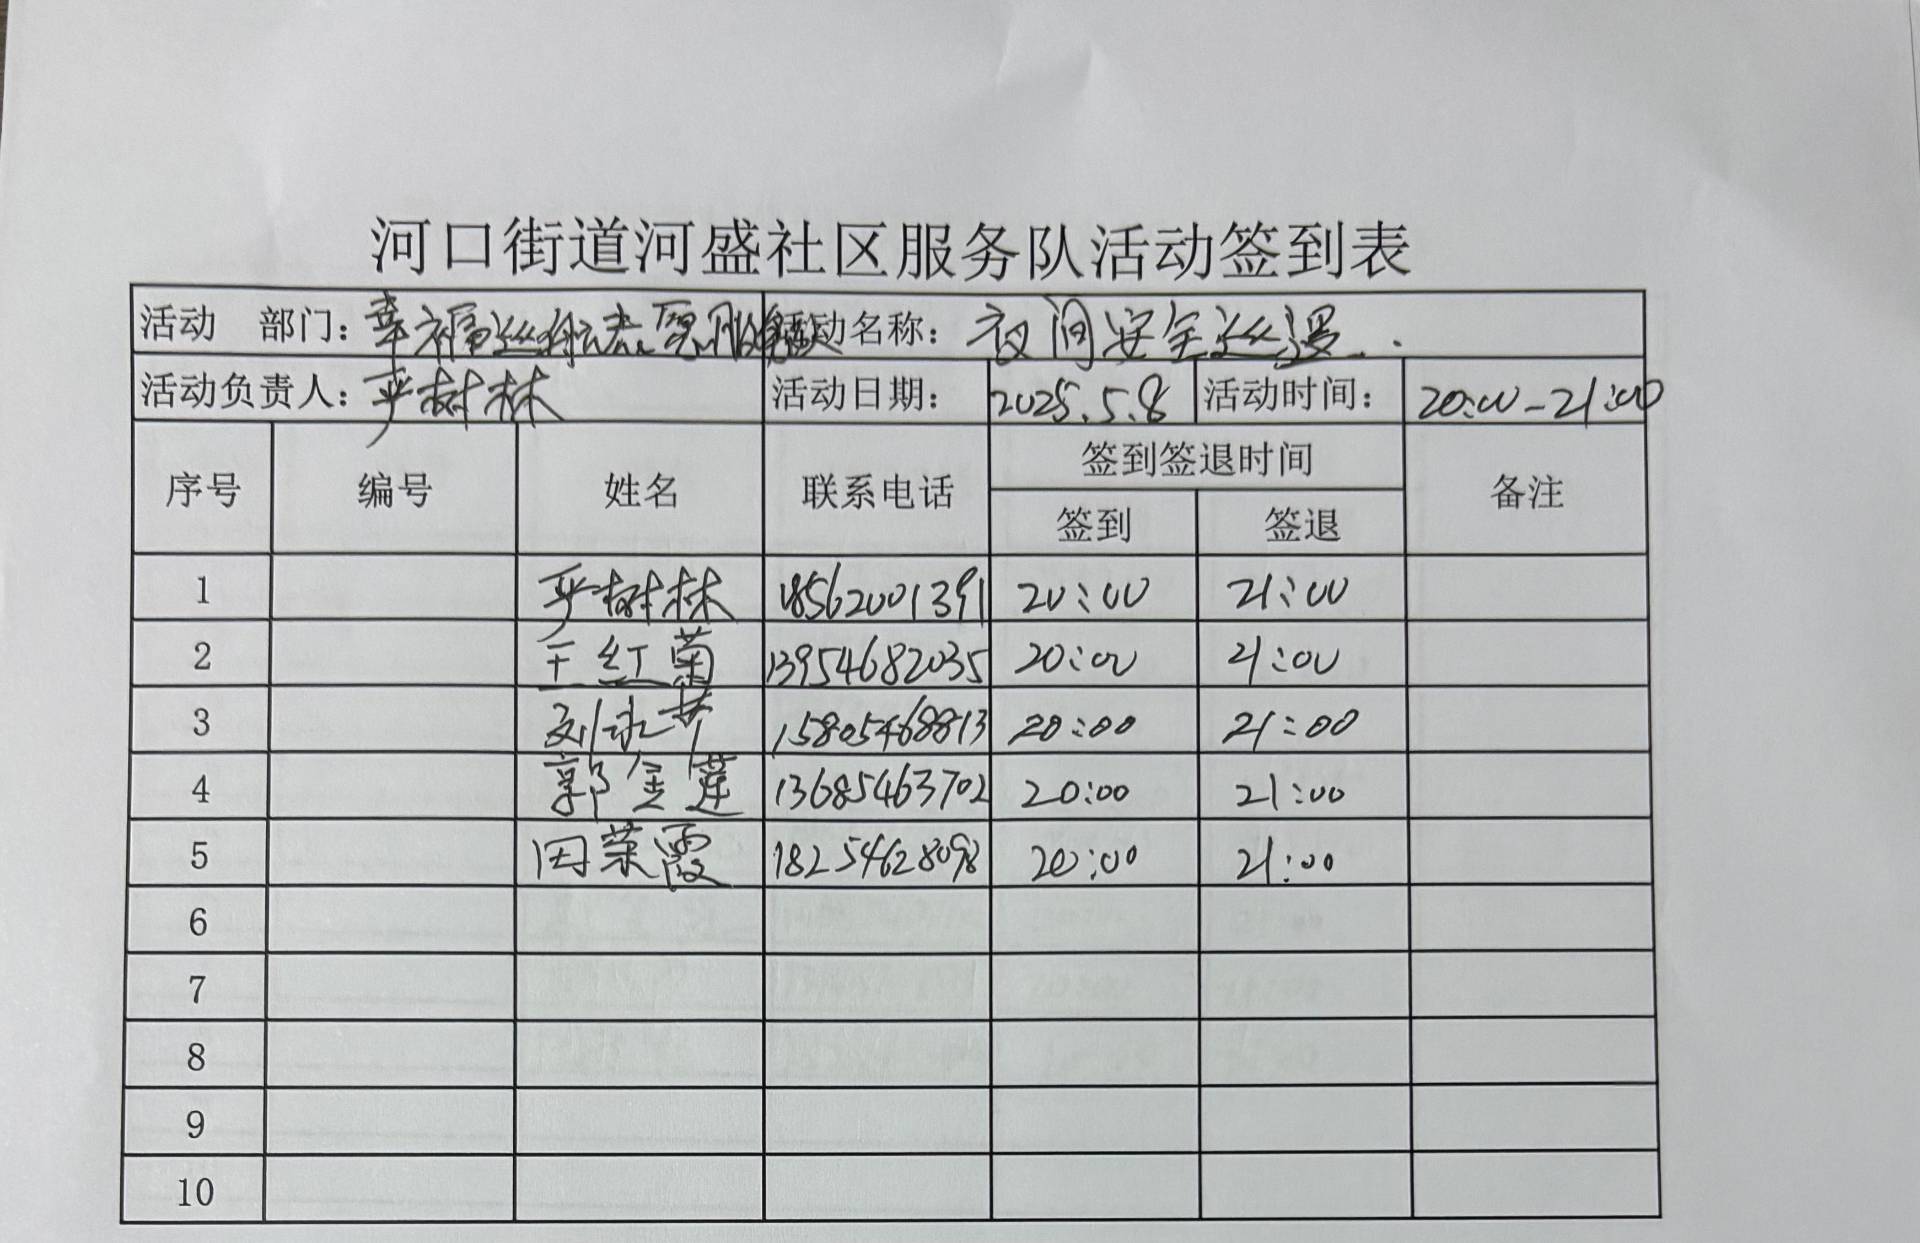 河口街道河盛社区服务队活动签到表
活动 部门：幸福巡航志愿服务队 活动名称：夜间安全巡逻
活动负责人：严树林 活动日期：2025.5.8 活动时间：20:00-21:00
序号 编号 姓名 联系电话 签到签退时间 备注
签到 签退
1 严树林 18562001391 20:00 21:00
2 王红菊 13954682035 20:00 21:00
3 刘永芳 15805468813 20:00 21:00
4 郭金莲 13685463702 20:00 21:00
5 田荣霞 18254628098 20:00 21:00
6
7
8
9
10